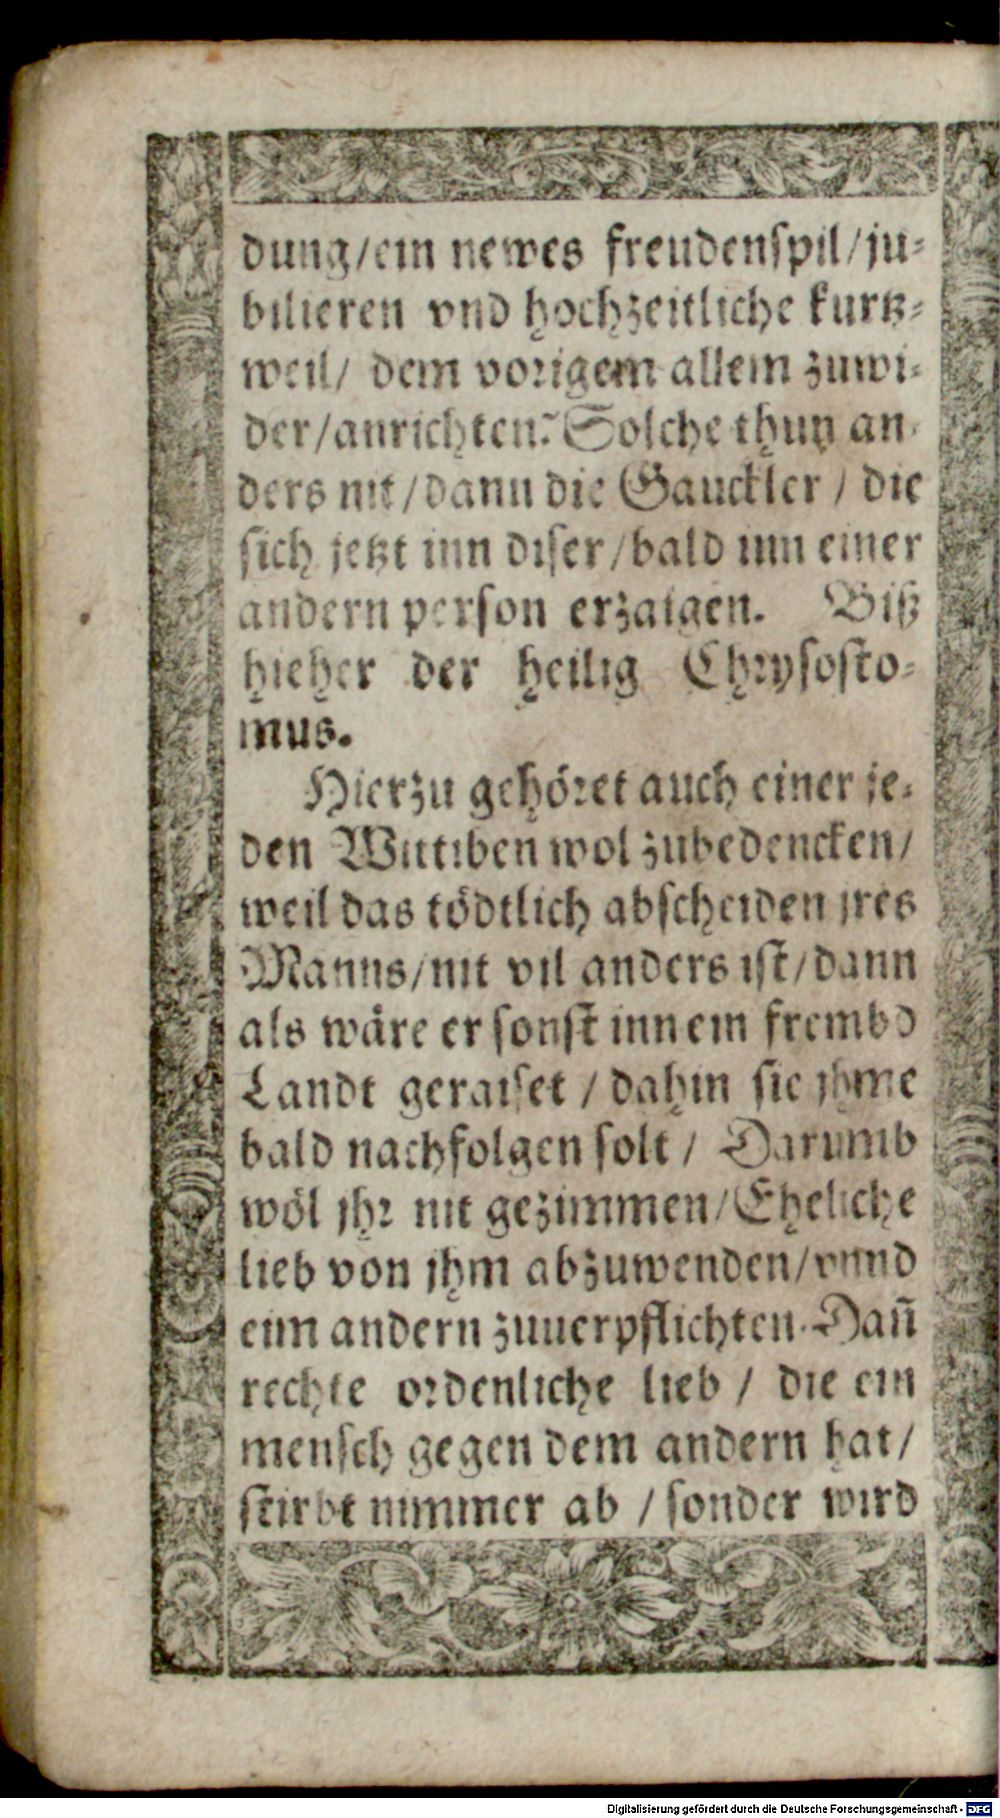 dung/ein newes freudenspil/ju⸗
bilieren vnd hochzeitliche kurtz⸗
weil/ dem vorigem allem zuwi⸗
der/anrichten? Solche thun an⸗
ders nit/dann die Gauckler / die
sich jetzt inn diser/bald inn einer
andern person erzaigen. Biß
hieher der heilig Chrysosto⸗
mus.
Hierzu gehöret auch einer je⸗
den Wittiben wol zubedencken/
weil das tödtlich abscheiden jres
Manns/nit vil anders ist/dann
als wäre er sonst inn ein frembd
Landt geraiset / dahin sie jhme
bald nachfolgen solt / Darumb
wöl jhr nit gezimmen/Eheliche
lieb von jhm abzuwenden/vnnd
eim andern zuuerpflichten. Dañ
rechte ordenliche lieb / die ein
mensch gegen dem andern hat/
stirbt nimmer ab / sonder wird
Digitalisierung gefördert durch die Deutsche Forschungsgemeinschaft - DFG